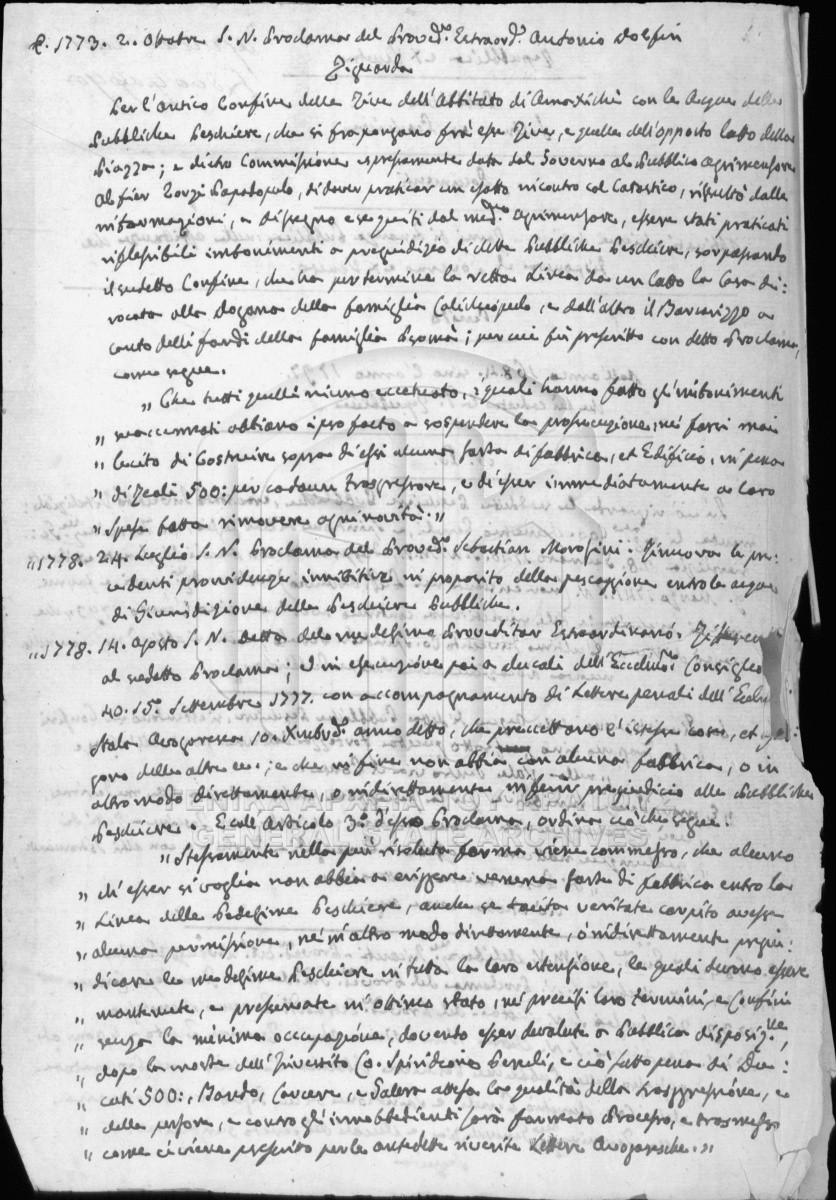 1773. 2. Ottobre S. N. Proclama del Proved.r Estraord.o Antonio Dolfin
Riguarda
Per l'antico Confine delle Rive dell'Abbitato di Amaxichi con le Acque delle
Pubbliche Peschiere, che si frapongono frà esse Rive, e quelle dell'opposto latto della
Piazza; e dietro Commissione espressamente data dal Governo al Pubblico Agrimensore
Alfier Zorzi Papadopulo, di dover praticar un esatto incontro col Catastico, risultò dalle
informazioni, e disegno eseguiti dal med.mo Agrimensore, essere stati praticati
riflessibili imbonimenti a preguidizio di dette Pubbliche Peschiere, sorpassando
il sudetto Confine, che ha per termine la retta Linea da un latto la Casa di:
rocata alla Dogana della famiglia Calichiopulo, e dall'altro il
canto delli fondi della famiglia; per cui fù prescritto con detto Proclama,
come segue.
" Che tutti quelli niuno eccetuato, i quali hanno fatto gl'imbonimenti
" sovraccennati abbiano ipso facto a sospendere la prosecuzione, nè farsi mai
" lecito di Costruire sopra di essi alcuna sorta di fabbrica, et Edificio, in pena
" di Reali 500: per cadaun trasgressore, e di esser immediatamente a loro
" spese fatta rimovere ogni novità."
" 1778. 24. Luglio S. N. Proclama del Proved.r Sebastian Morosini. Rinnova le pre:
cedenti providenze innibitive in proposito della pescaggione entro le acque
di Giurisdizione delle Peschiere Pubbliche.
" 1778. 14. Agosto S. N. Detto del medesimo Proveditor Estraordinario.
al sudetto Proclama; ed in esecuzione poi a ducali dell'Eccelmo Consiglio
40. 15. Settembre 1777. con accompagnamento di Lettere penali dell'
Avogaresca 10. anno detto, che precettano l'istesse cose, et
gono delle altre ec.; e che in fine non abbia con alcuna fabbrica, o in
altro modo direttamente, o indirettamente inferir pregiudicio alle Pubbliche
Peschiere. E coll'Articolo 3.o d'esso Proclama, ordina ciò che segue.
" Stessamente nella più risoluta forma viene commesso, che alcuno
" chi esser si voglia non abbia a eriggere veruna sorte di fabbrica entro la
" Linea delle Medesime Peschiere, anche se tacita veritate carpito avesse
" alcuna permissione, nè in altro modo direttamente, ò indirettamente pregiu:
" dicare le medesime Peschiere in tutta la loro estensione, le quali devono essere
" mantenute, e preservate in ottimo stato, nè precisi loro termini, e Confini
" senza la minima occupazione, dovendo esser devolute a Pubblica disposiz.ne,
" dopo la morte dell'Investito Co. Spiridion Peruli, e ciò sotto pena di Du:
" cati 500:, Bando, Carcere, e Galera attesa la qualità della trasgressione, e
" delle persone, e contro gl'innobbedienti sarà formato Processo, e trasmesso
" come ci viene prescritto per le antedette riverite Lettere Avogaresche."
ΓΕΝΙΚΑ ΑΡΧΕΙΑ ΤΟΥ ΚΡΑΤΟΥΣ
GENERAL STATE ARCHIVES